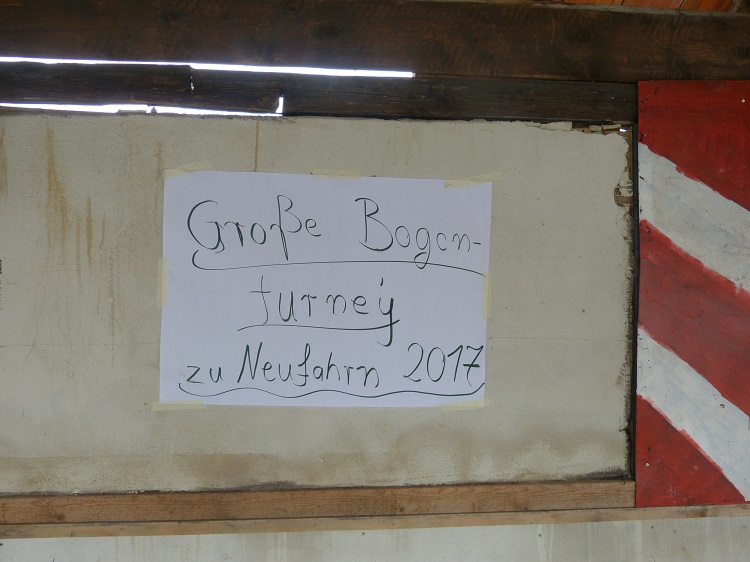 Große Bogen-
turney
zu Neufahrn 2017